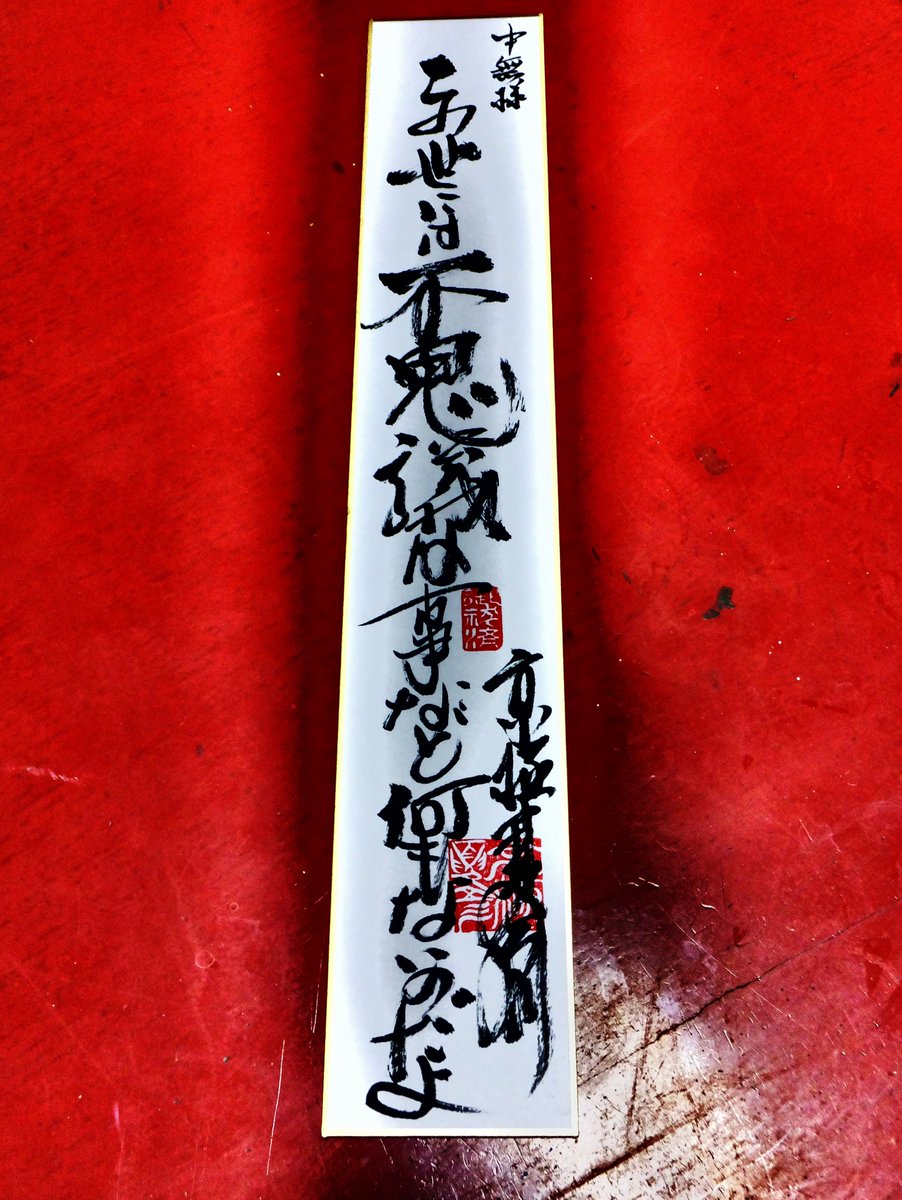 この世には不思議な事など何もないのだよ
京極夏彦